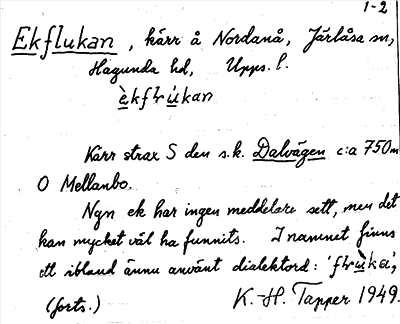 1-2
Ekflukan, kärr å Nordanå, Järlåsa sn,
Hagunda hd, Upps. l.
ὲkfɫὺkan
Kärr strax S den s.k. Dalvägen c:a 750 m
O Mellanbo.
Ngn ek har ingen meddelare sett, men det
kan mycket väl ha funnits. I namnet finns
ett ibland ännu använt dialektord: 'flùka',
(forts.) K.-H. Tapper 1949.